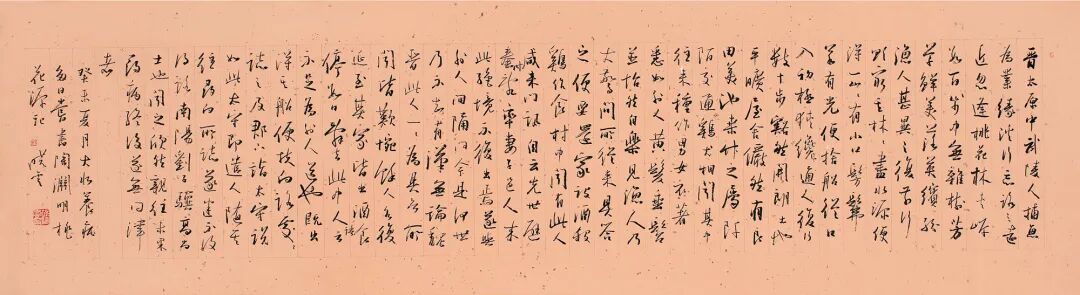 晋太原中武陵人捕魚
為業緣溪行忘路之遠
近忽逢桃花林夾岸
數百步中無雜樹芳
草鮮美落英繽紛
漁人甚異之復前行
欲窮其林林盡水源便
得一山山有小口髣髴
若有光便捨船從口
入初極狹纔通人復行
數十步豁然開朗土地
平曠屋舍儼然有良
田美池桑竹之屬阡
陌交通雞犬相聞其中
往來種作男女衣著
悉如外人黃髮垂髫
並怡然自樂見漁人乃
大驚問所從來具答
之便要還家設酒殺
雞作食村中聞有此人
咸來問訊自云先世避
秦時亂率妻子邑人來
此絕境不復出焉遂與
外人間隔問今是何世
乃不知有漢無論魏
晉此人一一為具言所
聞皆歎惋餘人各復
延至其家皆出酒食
停數日辭去此中人語云
不足為外人道也既出
得其船便扶向路處處
誌之及郡下詣太守說
如此太守即遣人隨其
往尋向所誌遂迷不復
得路南陽劉子驥高尚
士也聞之欣然親往未果
尋病終後遂無問津
者
癸未夏月大水
書陶淵明桃
花源記